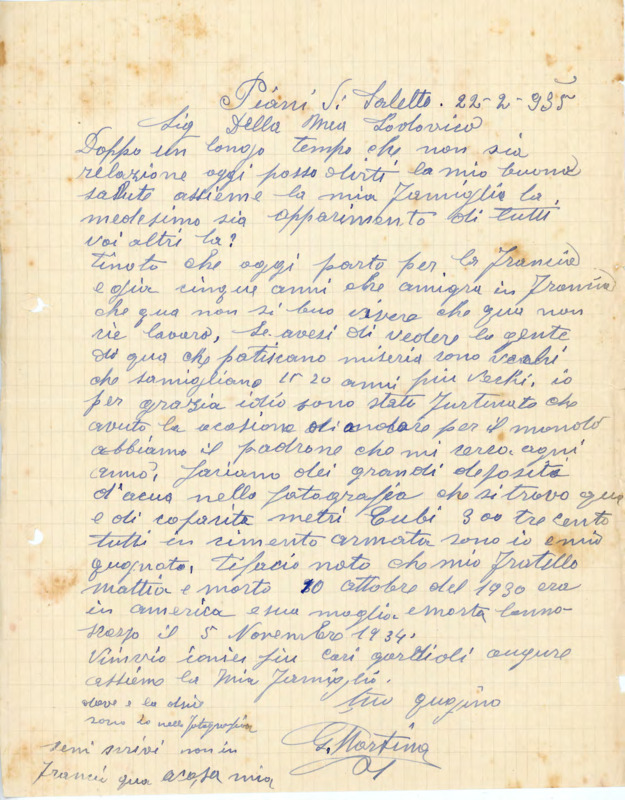 Piani di Saletto. 22-2-935
Sig Della Mea Lodovico
Doppo un longo tempo che non sia
relazione oggi posso dirti la mio buona
salute assieme la mia famiglia la
medesimo sia apparimento di tutti
voi altri la?
Tinoto che oggi parto per la Francia
e gia cinque anni che amigra in Francia
che qua non si buo vivere che qua non
cie lavoro, se avesi di vedere la gente
di qua che patiscano miseria sono vechi
che samigliano 15 20 anni piu vecki, io
per grazia idio sono stato furtunato che
avuto la ocasione di andare per il mondo
abbiamo il padrone che mi cerca agni
anno, faciano dei grandi deposito
d'acua nello fotografia che si trovo qua
e di caparita metri Cubi 300 trecento
tutti in cimento armata sono io e mio
qugnato, tifacio noto che mio fratello
mattia e morto 10 ottobre del 1930 era
in america e sua moglia e morta lanno
scorso il 5 Novembre 1934.
Vinvio i piu cari augure
assieme la mia famiglia.
tuo qugino
G. Martina
dove e la
sono io nella fotografia
seni scrivi non in
Franci qua acasa mia